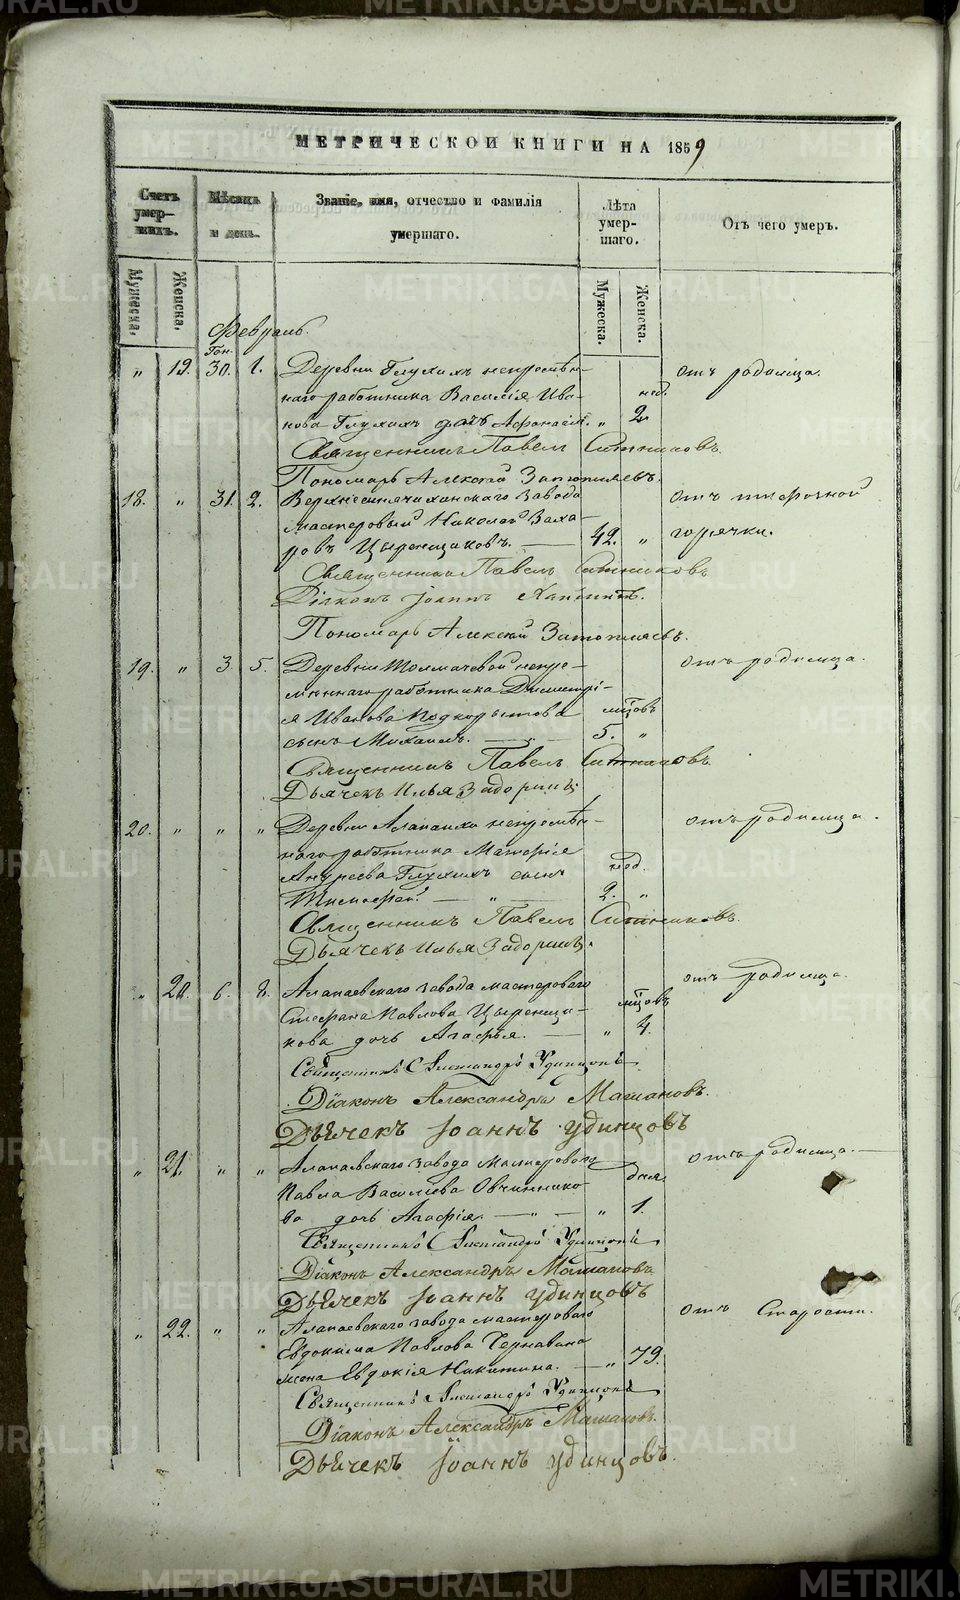 МЕТРИЧЕСКОЙ КНИГИ НА 1859
Счетъ умер-шихъ.
Мѣсяцъ и день.
Званіе, имя, отчество и фамилія умершаго.
Лѣта умер-шаго.
Отъ чего умеръ.
Мужеска. Женска. Мужеска. Женска.
Февраль.
Ген.
" 19. 30. 1. Деревни Глухихъ непремѣн- отъ родимца.
наго работника Василія Ива- нед.
нова Глухихъ дочь Афанасія. " 2.
Священникъ Павелъ Ситниковъ.
Пономарь Алексій Затопляевъ.
18. " 31. 2. Верхнесинячиханскаго Завода отъ тифозной
мастеровый Николай Заха- горячки.
ровъ Цыренщиковъ. — 42. "
Священникъ Павелъ Ситниковъ
Діаконъ Іоаннъ
Пономарь Алексій Затопляевъ.
19. " 3. 5. Деревни Толмачевой непре- отъ родимца.
мѣннаго работника Димитрі-
я Иванова Подкорытова мѣсцовъ
сынъ Михаилъ. — 5. "
Священникъ Павелъ Ситниковъ.
Дьячекъ Илья Задоринъ
20. " " " Деревни Алапаихи непремѣн- отъ родимца.
наго работника Матфія
Андреева Глухихъ сынъ нед.
Тимофей. — " — 2. "
Священникъ Павелъ Ситниковъ.
Дьячекъ Илья Задоринъ.
" 20. 6. 8. Алапаевскаго завода мастероваго отъ родимца.
Стефана Павлова Цыренщи- мѣсцовъ
кова дочь Агафья. — " 4.
Священникъ Александръ Удинцовъ
Діаконъ Александръ Машановъ.
Дьячекъ Іоаннъ Удинцовъ
" 21. " " Алапаевскаго завода мастероваго отъ родимца.
Павла Васильева Овчиннико- дня.
ва дочь Агафія. — " — " 1.
Священникъ Александръ Удинцовъ
Діаконъ Александръ Машановъ
Дьячекъ Іоаннъ Удинцовъ
" 22. " " Алапаевскаго завода мастероваго отъ Старости.
Евдокима Павлова Чернавина
жена Евдокія Никитина. — " 79.
Священникъ Александръ Удинцовъ
Діаконъ Александръ Машановъ.
Дьячекъ Іоаннъ Удинцовъ.
METRIKI.GASO-URAL.RU